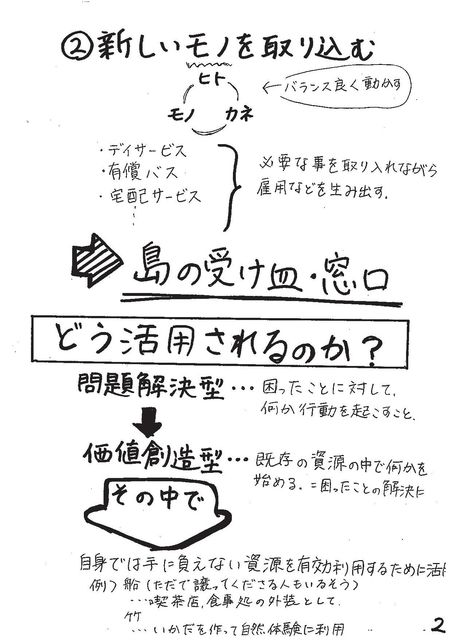 ②新しいモノを取り込む
ヒト
モノ カネ
←バランス良く動かす
・デイサービス
・有償バス
・宅配サービス
⋮
必要な事を取り入れながら
雇用などを生み出す.
島の受け皿・窓口
どう活用されるのか?
問題解決型…困ったことに対して,
何か行動を起こすこと.
価値創造型…既存の資源の中で何かを
始める.=困ったことの解決に
その中で
自身では手に負えない資源を有効利用するために活
例) 船(ただで譲ってくださる人もいるそう)
…喫茶店,食事処の外装として.
竹
…いかだを作って自然体験に利用
2